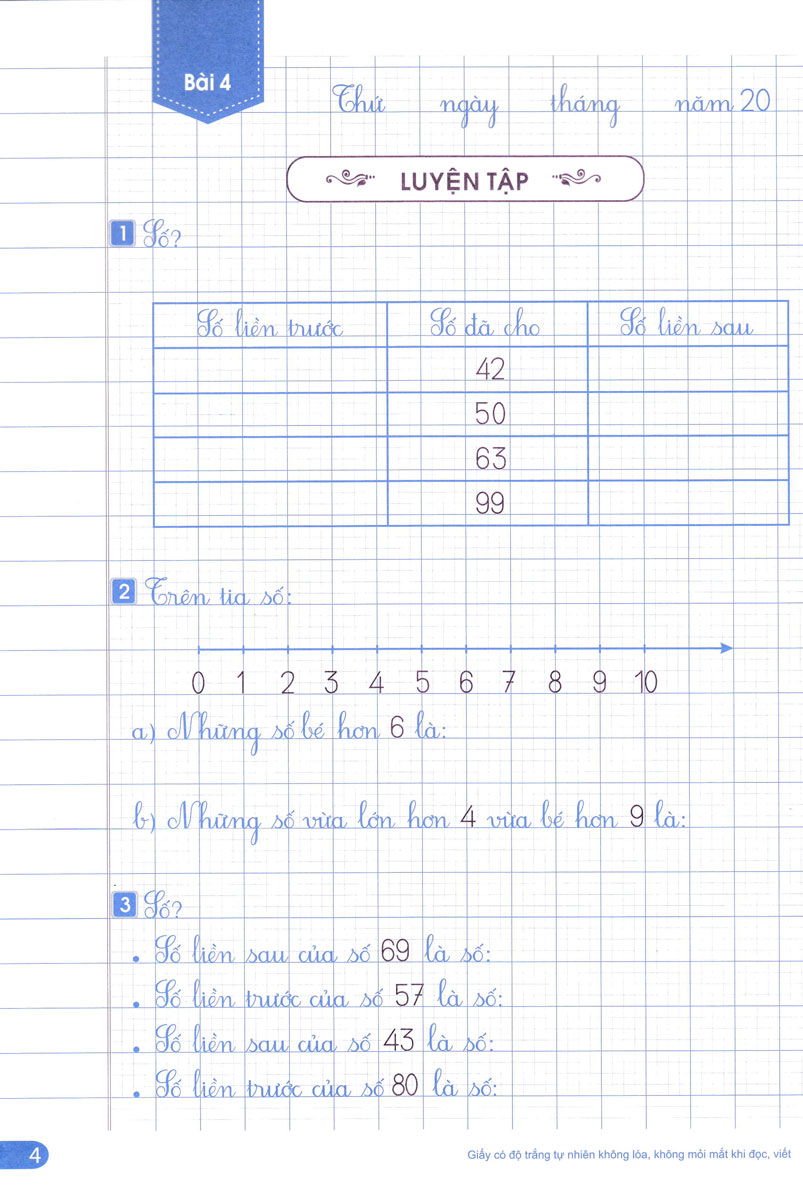 Bài 4
Thứ ngày tháng năm 20
LUYỆN TẬP
1 Số?
Số liền trước Số đã cho Số liền sau
42
50
63
99
2 Trên tia số:
0 1 2 3 4 5 6 7 8 9 10
a) Những số bé hơn 6 là:
b) Những số vừa lớn hơn 4 vừa bé hơn 9 là:
3 Số?
• Số liền sau của số 69 là số:
• Số liền trước của số 57 là số:
• Số liền sau của số 43 là số:
• Số liền trước của số 80 là số:
4 Giấy có độ trắng tự nhiên không lóa, không mỏi mắt khi đọc, viết